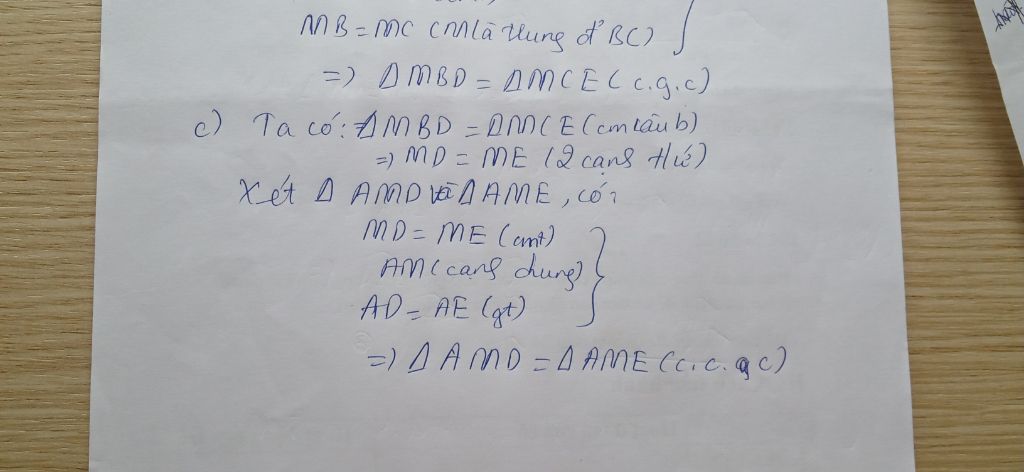 MB = MC (M là trung đ' BC)
=> Δ MBD = Δ MCE (c.g.c)
c) Ta có: Δ MBD = Δ MCE (cm câu b)
=> MD = ME (2 cạnh t/ứ)
Xét Δ AMD và Δ AME, có:
MD = ME (cmt)
AM (cạnh chung)
AD = AE (gt)
=> Δ AMD = Δ AME (c.c.c)